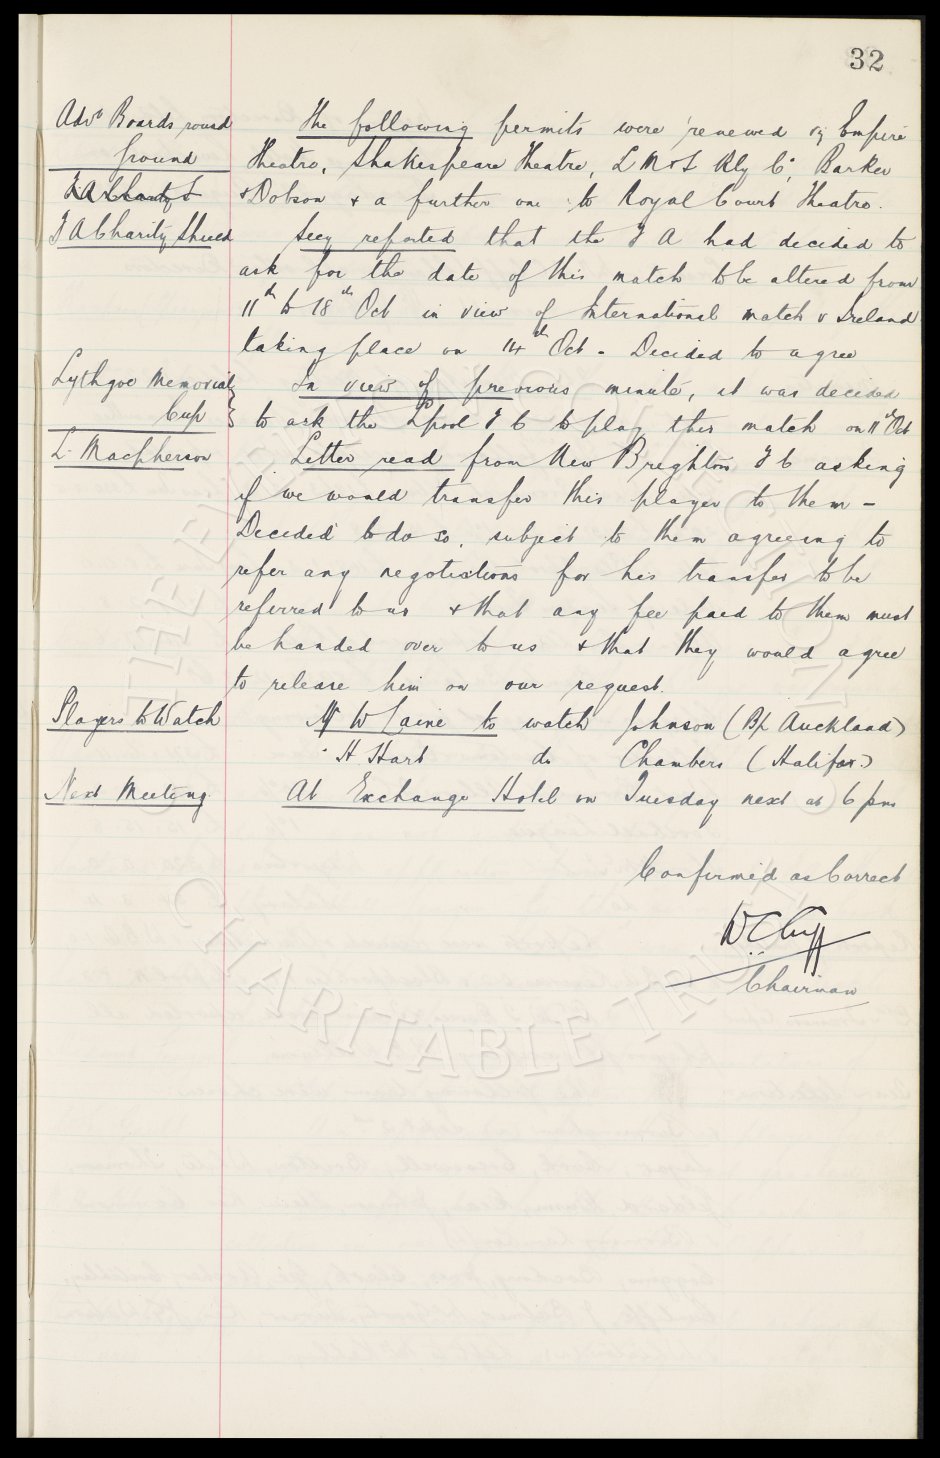 32
Advg Boards round
Ground
The following permits were renewed vz Empire
Theatre, Shakespeare Theatre, L M & S Rly Co, Barker
& Dobson & a further one to Royal Court Theatre.
F A Charity S
F A Charity Shield
Secy reported that the F A had decided to
ask for the date of this match to be altered from
11th to 18th Oct in view of International match v Ireland
taking place on 14th Oct - Decided to agree
Lythgoe Memorial
Cup
In view of previous minute, it was decided
to ask the Lpool F C to play this match on 11th Oct
L. Macpherson
Letter read from New Brighton F C asking
if we would transfer this player to them -
Decided to do so, subject to them agreeing to
refer any negotiations for his transfer to be
referred to us & that any fee paid to them must
be handed over to us & that they would agree
to release him on our request.
Players to Watch
Mr W Caine to watch Johnson (Bp Auckland)
" H Hart do Chambers (Halifax)
Next Meeting
At Exchange Hotel on Tuesday next at 6 pm
Confirmed as Correct
W C Cuff
Chairman
THE EVERTON COLLECTION
CHARITABLE TRUST